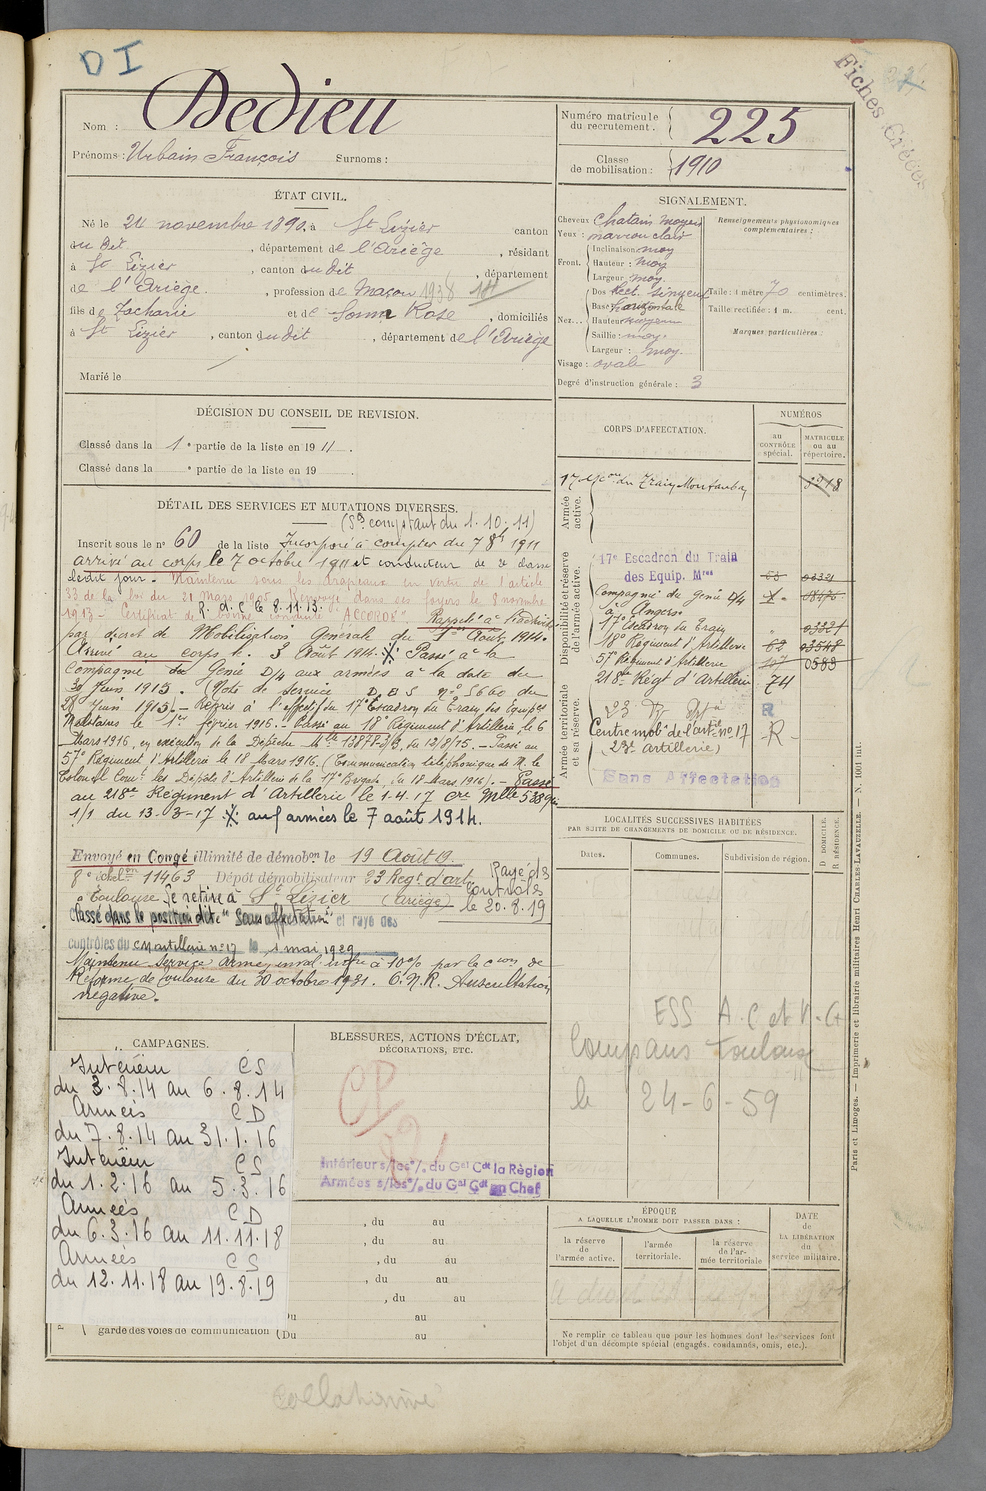 DI
Fiches Créées
Nom : Dedieu
Prénoms : Urbain François Surnoms :
Numéro matricule du recrutement : 225
Classe de mobilisation : 1910
ÉTAT CIVIL.
Né le 24 novembre 1890, à St Lizier canton
du dit , département de l'Ariège , résidant
à St Lizier , canton du dit , département
de l'Ariège , profession de Maçon 1938
fils de Zacharie et de Rose , domiciliés
à St Lizier , canton du dit , département de l'Ariège
Marié le
SIGNALEMENT.
Cheveux Chatain moyen
Yeux : marron clair
Front. Inclinaison : moy
Hauteur : moy
Largeur : moy.
Nez... Dos Rect. sinueux
Base horizontale
Hauteur moyenne
Saillie : moy.
Largeur : moy.
Visage : ovale
Degré d'instruction générale : 3
Renseignements physionomiques
complémentaires :
Taille : 1 mètre 70 centimètres.
Taille rectifiée : 1 m. cent.
Marques particulières :
DÉCISION DU CONSEIL DE REVISION.
Classé dans la 1e partie de la liste en 1911.
Classé dans la e partie de la liste en 19 .
DÉTAIL DES SERVICES ET MUTATIONS DIVERSES.
(Sce comptant du 1.10.11)
Inscrit sous le no 60 de la liste Incorporé à compter du 7 8bre 1911
arrivé au corps le 7 octobre 1911 et conducteur de 2e classe
le dit jour. Maintenu sous les drapeaux en vertu de l'article
33 de la loi du 21 Mars 1905. Renvoyé dans ses foyers le 8 novembre
1913. Certificat de bonne conduite "ACCORDÉ". Rappelé à l'activité
R. d. C le 8.11.13.
par décret de Mobilisation Générale du 1er Août 1914.
Arrivé au corps le 3 Août 1914. ※ Passé à la
Compagnie du Génie D/4 aux armées à la date du
30 Juin 1915. (Note de Service D.E.S no 5660 du
28 Juin 1915). - Repris à l'effectif du 17e Escadron du Train des Equipages
Militaires le 1er février 1916. - Passé au 18e Régiment d'Artillerie le 6
Mars 1916, en exécution de la Dépêche Mlle 13878-3/3, du 12/8/15. - Passé au
57e Régiment d'Artillerie le 18 Mars 1916. (Communication téléphonique de M. le
Colonel Comt les Dépôts d'Artillerie de la 17e Brigade, du 18 Mars 1916). - Passé
au 218e Régiment d'Artillerie le 1-4-17
1/1 du 13-3-17 ※ aux armées le 7 août 1914.
Envoyé en Congé illimité de démobon le 19 Août 19.
8e échelon 11463 Dépôt démobilisateur 23 Regt d'artie Rayé des contrôles le 20.8.19
à Toulouse Se retire à St Lizier (Ariège)
Classé dans la position dite "Sans affectation" et rayé des
contrôles du CM artillerie no 17 le 1 mai 1929
Maintenu Service Armé, inval. infre à 10% par la Con de
Réforme de Toulouse du 30 octobre 1931. Auscultation
négative.
CORPS D'AFFECTATION.
NUMÉROS
au CONTRÔLE spécial.
MATRICULE ou au répertoire.
Armée active.
17e Econ du Train Montauban 3218
Disponibilité et réserve de l'armée active.
17e Escadron du Train
des Equip. Mres
Compagnie du Génie D/4
à Angers
17e Escadron du Train 03321
18e Régiment d'Artillerie 62 03548
57e Régiment d'Artillerie 0583
218e Régt d'Artillerie 74
Armée territoriale et sa réserve.
R
Centre mob. de l'artie no 17 R
(23e artillerie)
Sans Affectation
LOCALITÉS SUCCESSIVES HABITÉES
PAR SUITE DE CHANGEMENTS DE DOMICILE OU DE RÉSIDENCE.
Dates. Communes. Subdivision de région.
D DOMICILE. R RÉSIDENCE.
ESS A.C et V.G
Compans Toulouse
le 24-6-59
CAMPAGNES.
Intérieur CS
du 3.8.14 au 6.8.14
Armées CD
du 7.8.14 au 31.1.16
Intérieur CS
du 1.2.16 au 5.3.16
Armées CD
du 6.3.16 au 11.11.18
Armées CS
du 12.11.18 au 19.8.19
BLESSURES, ACTIONS D'ÉCLAT,
DÉCORATIONS, ETC.
Intérieur s/les o/. du Gal Cdt la Région
Armées s/les o/. du Gal Cdt en Chef
, du au
, du au
, du au
, du au
, du au
Du au
garde des voies de communication (Du au
ÉPOQUE
A LAQUELLE L'HOMME DOIT PASSER DANS :
la réserve de l'armée active.
l'armée territoriale.
la réserve de l'armée territoriale
DATE de LA LIBÉRATION du service militaire.
Ne remplir ce tableau que pour les hommes dont les services font
l'objet d'un décompte spécial (engagés, condamnés, omis, etc.).
Paris et Limoges. — Imprimerie et librairie militaires Henri CHARLES-LAVAUZELLE. — N. 1601 int.